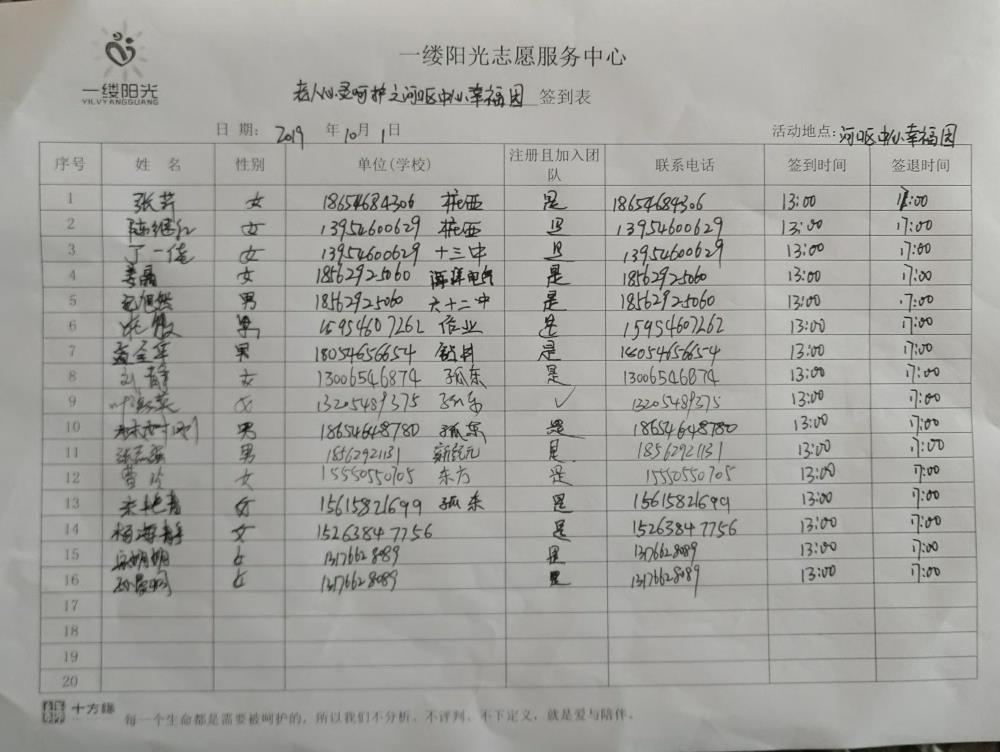 一缕阳光
YILVYANGGUANG
一缕阳光志愿服务中心
老人心灵呵护之河口区中心幸福园 签到表
日 期: 2019 年 10 月 1 日 活动地点: 河口区中心幸福园
序号 姓 名 性别 单位(学校) 注册且加入团队 联系电话 签到时间 签退时间
1 张芹 女 18654684306 桩西 是 18654684306 13:00 17:00
2 女 13954600629 桩西 是 13954600629 13:00 17:00
3 丁一倩 女 13954600629 十三中 是 13954600629 13:00 17:00
4 姜晶 女 18562925060 海洋电气 是 18562925060 13:00 17:00
5 男 18562925060 六十二中 是 18562925060 13:00 17:00
6 男 15954607262 作业 是 15954607262 13:00 17:00
7 男 18054656654 钻井 是 18054656654 13:00 17:00
8 刘静 女 13006546874 孤东 是 13006546874 13:00 17:00
9 女 13205489375 孤东 ✓ 13205489375 13:00 17:00
10 男 18654648780 孤东 是 18654648780 13:00 17:00
11 男 18562921131 新纪元 是 18562921131 13:00 17:00
12 曹玲 女 15550550705 东方 是 15550550705 13:00 17:00
13 女 15615821699 孤东 是 15615821699 13:00 17:00
14 杨海静 女 15263847756 是 15263847756 13:00 17:00
15 女 13176628089 是 13176628089 13:00 17:00
16 女 13176628089 是 13176628089 13:00 17:00
17
18
19
20
十方缘 每一个生命都是需要被呵护的，所以我们不分析、不评判、不下定义，就是爱与陪伴。